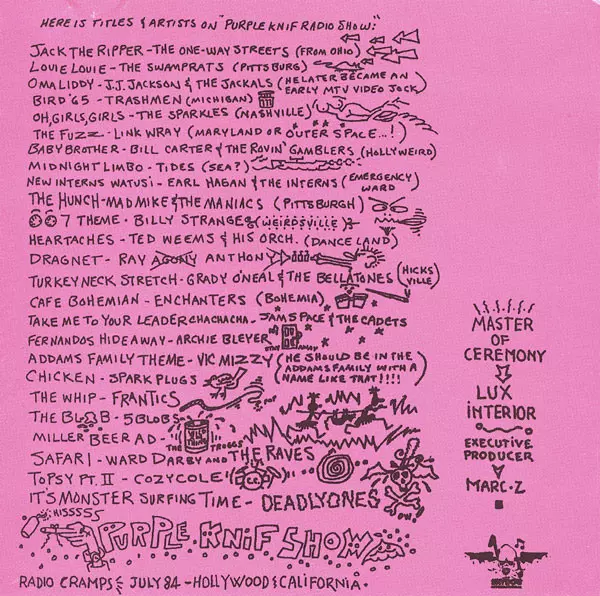 HERE IS TITLES & ARTISTS ON "PURPLE KNIF RADIO SHOW:"
JACK THE RIPPER - THE ONE-WAY STREETS (FROM OHIO)
LOUIE LOUIE - THE SWAMPRATS (PITTSBURG)
OMALIDDY - J.J. JACKSON & THE JACKALS (HE LATER BECAME AN EARLY MTV VIDEO JOCK)
BIRD '65 - TRASHMEN (MICHIGAN)
OH, GIRLS, GIRLS - THE SPARKLES (NASHVILLE)
THE FUZZ - LINK WRAY (MARYLAND OR OUTER SPACE...!)
BABY BROTHER - BILL CARTER & THE ROVIN' GAMBLERS (HOLLYWEIRD)
MIDNIGHT LIMBO - TIDES (SEA?)
NEW INTERNS WATUSI - EARL HAGAN & THE INTERNS (EMERGENCY WARD)
THE HUNCH - MAD MIKE & THE MANIACS (PITTSBURGH)
007 THEME - BILLY STRANGE (WEIRDSVILLE)
HEARTACHES - TED WEEMS & HIS ORCH. (DANCELAND)
DRAGNET - RAY AGONY ANTHONY
TURKEY NECK STRETCH - GRADY O'NEAL & THE BELLATONES (HICKSVILLE)
CAFE BOHEMIAN - ENCHANTERS (BOHEMIA)
TAKE ME TO YOUR LEADER CHACHACHA - JAM SPACE & THE CADETS
FERNANDOS HIDEAWAY - ARCHIE BLEYER
STAY AWAY
ADDAMS FAMILY THEME - VIC MIZZY (HE SHOULD BE IN THE ADDAMS FAMILY WITH A NAME LIKE THAT!!!!)
CHICKEN - SPARK PLUGS
THE WHIP - FRANTICS
THE BLOB - 5 BLOBS
MILLER BEER AD - THE TROGGS
WILD THING
SAFARI - WARD DARBY AND THE RAVES
TOPSY PT. II - COZY COLE
IT'S MONSTER SURFING TIME - DEADLY ONES
HISSSSS
PURPLE KNIF SHOW
RADIO CRAMPS JULY 84 - HOLLYWOOD & CALIFORNIA.
MASTER
OF
CEREMONY
LUX
INTERIOR
EXECUTIVE
PRODUCER
MARC.Z